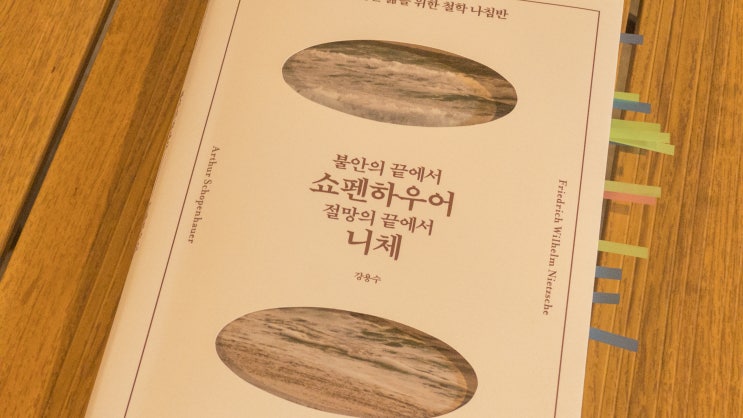 위한 철학 나침반
불안의 끝에서
쇼펜하우어
절망의 끝에서
니체
강용수
Arthur Schopenhauer
Friedrich Wilhelm Nietzsche